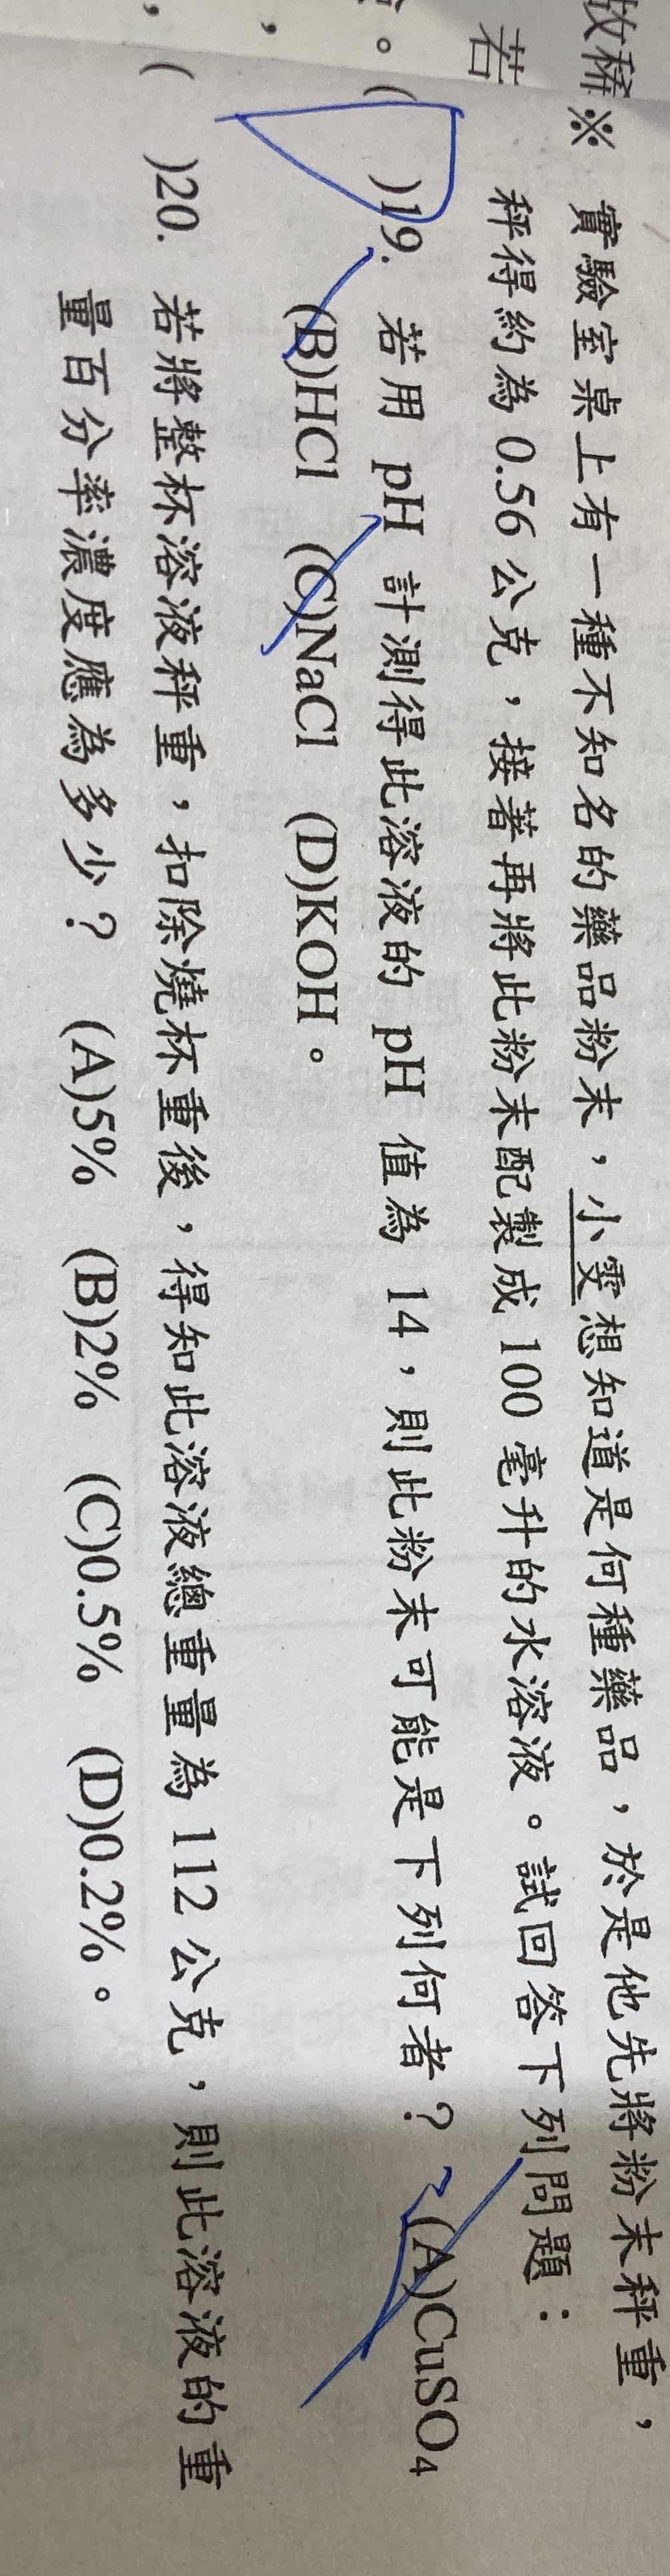 故稀
若
※ 實驗室桌上有一種不知名的藥品粉末，小雯想知道是何種藥品，於是他先將粉末秤重，
秤得約為 0.56 公克，接著再將此粉末配製成 100 毫升的水溶液。試回答下列問題：
( )19. 若用 pH 計測得此溶液的 pH 值為 14，則此粉末可能是下列何者？ (A)CuSO₄
(B)HCl (C)NaCl (D)KOH。
( )20. 若將整杯溶液秤重，扣除燒杯重後，得知此溶液總重量為 112 公克，則此溶液的重
量百分率濃度應為多少？ (A)5% (B)2% (C)0.5% (D)0.2%。